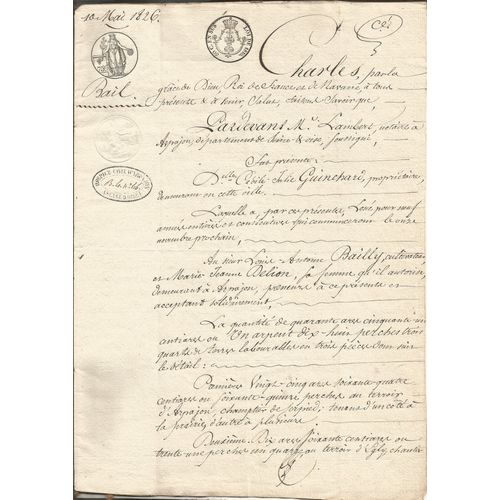 10 Mai 1826.
Bail
Charles, par la
grâce de Dieu, Roi de France et de Navarre, à tous
présents & à venir Salut, faisons savoir que,
Pardevant Me. Lambert, notaire à
Arpajon, département de Seine & oise, soussigné,
Fut présente:
Dlle Cécile Julie Guinchard, propriétaire,
demeurant en cette ville.
Laquelle a, par ces présentes, Loué pour neuf
années entières et consécutives qui commenceront le onze
novembre prochain,
Au sieur Louis-Antoine Bailly, cultivateur
et Marie Jeanne Delion, sa femme qu'il autorise,
demeurant à Arpajon, preneurs à ce présents et
acceptant solidairement,
La quantité de quarante ares cinquante-un
centiares ou Un arpent dix-huit perches trois
quarts de terres labourables en trois pièces dont suit
le détail:
Premièrement Vingt-cinq ares soixante-quatre
centiares ou soixante-quinze perches au terroir
d'Arpajon, champtier de tenant d'un côté
à la prairie, d'autre à plusieurs
Deuxièment Dix ares soixante centiares ou
trente-une perches en quarré au terroir d'Egly, chantier